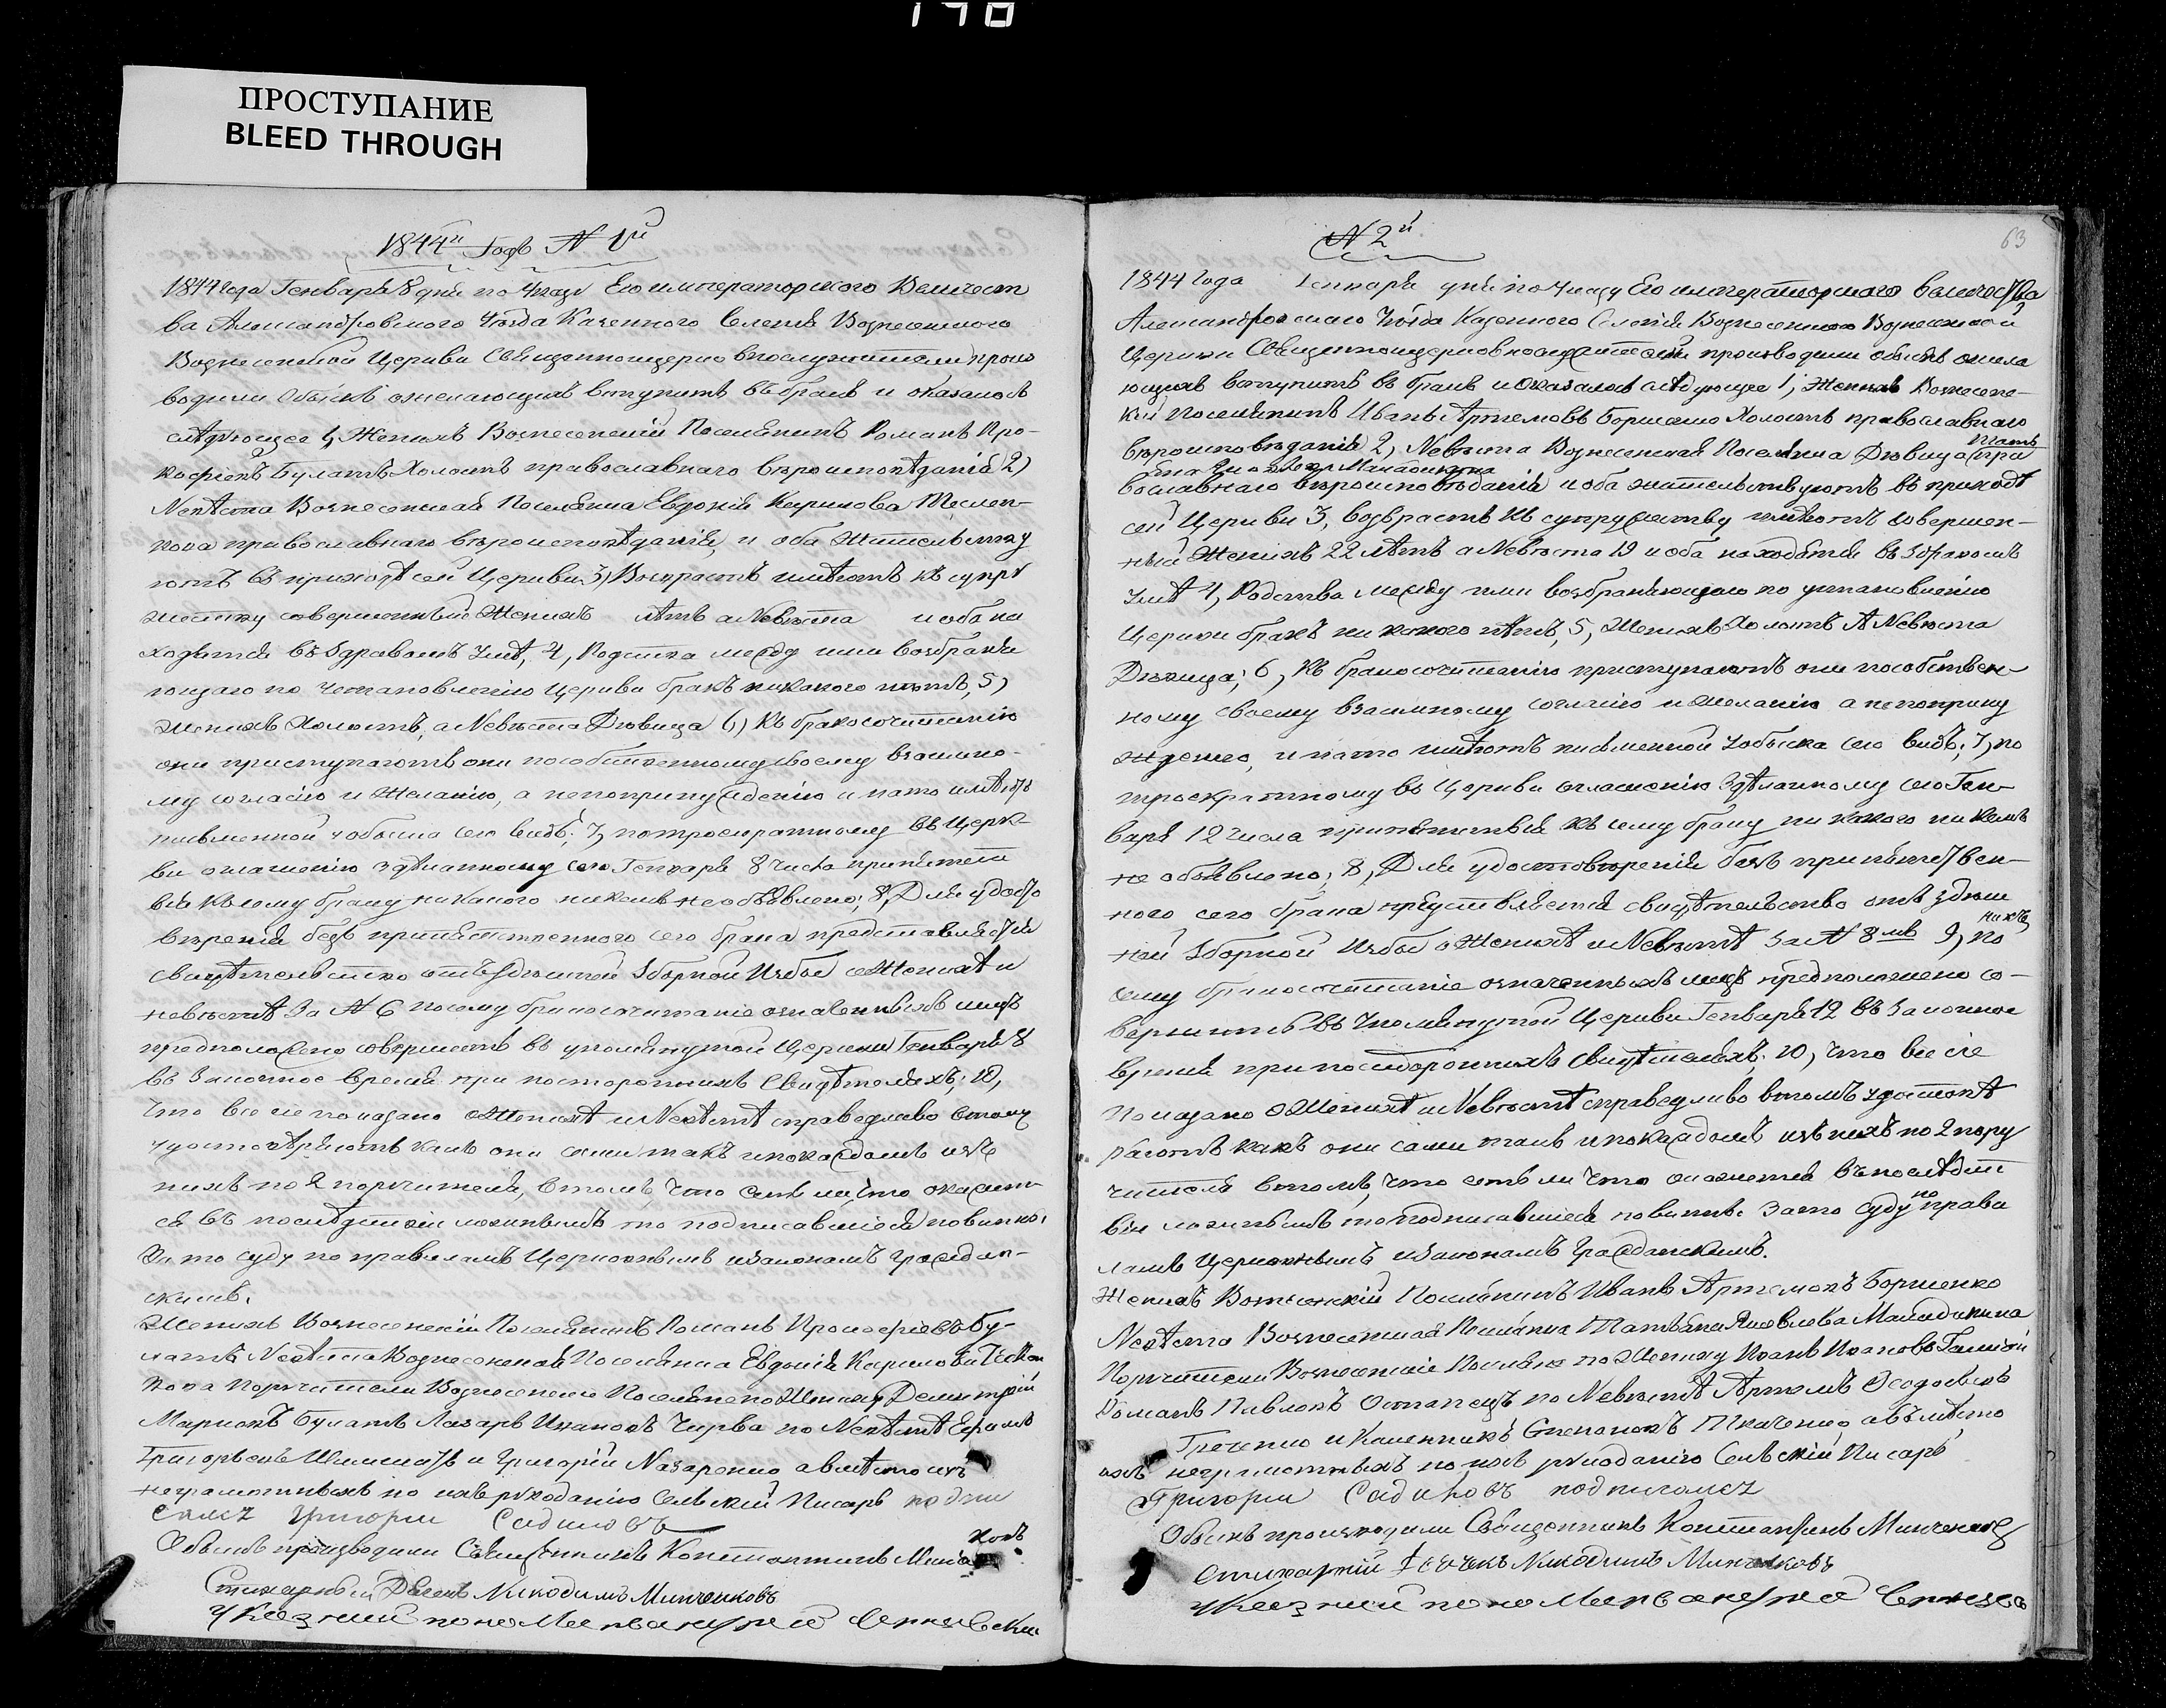 198
ПРОСТУПАНИЕ
BLEED THROUGH
1844й Годъ N 1й
1844 Года Генваря 8 дня по Указу Его императорского Величест
ва Александровского Уѣзда Казенного Селенія Вознесенского
Вознесенской Церкви Священноцерковнослужители произ
водили Обыскъ о желающихъ вступить въ бракъ и оказалось
слѣдующее 1, Женихъ Вознесенскій Поселянинъ Романъ Про-
кофіевъ Булатъ Холостъ православнаго вѣроисповѣданія 2)
Невѣста Вознесенская Поселянка Евдокія Кирилова
православнаго вѣроисповѣданія, и оба Жительству
ютъ въ приходѣ сей Церкви 3) Возрастъ имѣютъ къ супру
жеству совершенный Женихъ лѣтъ а Невѣста и оба на
ходятся въ здравомъ умѣ, 4, Родства между ими возбраня
ющаго по установленію Церкви бракъ никакого нѣтъ, 5)
Женихъ Холостъ, а Невѣста Дѣвица 6) Къ бракосочитанію
они приступаютъ они по собственному своему взаимно-
му согласію и Желанію, а не по принужденію и на то имѣютъ
письменной у обыска сего видъ; 7, по троекратному въ Церк-
ви оглашенію здѣланному сего Генваря 8 числа препятст
вія къ сему браку никакого никемъ не объявлено; 8, Для удосто
вѣренія безъ препятственного сего брака представляется
свидѣтельство отъ здѣшней Зборной Избы о Женихѣ и
невѣстѣ За N 6 посему бракосочитаніе означенныхъ лицъ
предположено совершить въ упомянутой Церкви Генваря 8
въ Законное время при постороннихъ Свидѣтеляхъ; 10,
Что все сие показано о Женихѣ и Невѣстѣ справедливо въ томъ
удостовѣряютъ какъ они сами такъ и по каждомъ изъ
нихъ по 2 поручителя, въ томъ, Что естьли что окажит
ся въ послѣдствіи ложнымъ то подписавшіеся повинны
За то суду по правиламъ Церковнымъ и Законамъ Граждан-
скимъ.
Женихъ Вознесенскій Поселянинъ Романъ Прокофіевъ Бу-
латъ Невѣста Вознесенская Поселянка Евдокія Кирилова
Поручители Вознесенскіе Поселяне по Женихѣ Димитрій
Марковъ Булатъ Лазарь Ивановъ Чирва по Невѣстѣ Ефимъ
Григорьевъ и Григорій Назаренко а вместо ихъ
неграмотныхъ по ихъ рукоданію Сельскій Писарь подпи
салсь Григорий Садиковъ
Обыскъ производили Священникъ Константинъ
Стихарный Дьячекъ Никодимъ Минченковъ
Указний пономарь
63
N 2й
1844 Года Генваря дня по Указу Его императорского величества
Александровскаго Уѣзда Казенного Селенія Вознесенскаго Вознесенской
Церкви Священноцерковнослужители производили обыскъ о жела
ющихъ вступить въ бракъ и оказалось слѣдующее 1, Женихъ Вознесен-
скій Поселянинъ Иванъ Артемовъ Борщенко Холостъ православнаго
вѣроисповѣданія 2, Невѣста Вознесенская Поселянка Дѣвица Тать
яна Яковлева пра
вославнаго вѣроисповѣданія и оба жительствуютъ въ приходѣ
сей Церкви 3, Возврастъ къ супружеству имѣютъ совершен-
ный Женихъ 22 лѣтъ а Невѣста 19 и оба находятся въ здравомъ
умѣ 4, Родства между ими возбраняющаго по установленію
Церкви бракъ никакого нѣтъ, 5, Женихъ Холостъ А Невѣста
Дѣвица; 6, Къ бракосочитанію приступаютъ они по собствен-
ному своему взаимному согласію и желанію а не по прину
жденію, и на то имѣютъ письменной у обыска сего видъ; 7, по
троекратному въ Церкви оглашенію здѣланному сего Ген-
варя 12 числа препятствія къ сему браку никакого никемъ
не объявлено; 8, Для удостовѣренія безъ препятствен-
ного сего брака представляется свидѣтельство отъ здѣш
ней Зборной Избы о Женихѣ и Невѣстѣ За N 8мъ 9, По
сему бракосочитаніе означенныхъ лицъ предположено со-
вершить въ Упомянутой Церкви Генваря 12 въ Законное
время при постороннихъ Свидѣтеляхъ; 10, Что все сіе
показано о Женихѣ и Невѣстѣ справедливо въ томъ удостовѣ
ряютъ какъ они сами такъ и по каждомъ изъ нихъ по 2 пору
чителя въ томъ, Что естьли что окажется въ послѣдст
віи ложнымъ то подписавшіеся повинны За то суду по прави
ламъ Церковнымъ и Законамъ Гражданскимъ.
Женихъ Вознесенскій Поселянинъ Иванъ Артемовъ Борщенко
Невѣста Вознесенская Поселянка Татьяна Яковлева
Поручители Вознесенскіе Поселяне по Женихѣ Иванъ Ивановъ
Романъ Павловъ Остапецъ по Невѣстѣ Артемъ Федосѣевъ
Гречено и Степановъ Ткаченко а вмѣсто
ихъ неграмотныхъ по ихъ рукоданію Сельскій Писарь
Григории Садиковъ подписалсь
Обыскъ производили Священникъ Константинъ Минченковъ
стихарный Дьячекъ Никодимъ Минченковъ
Указний пономарь